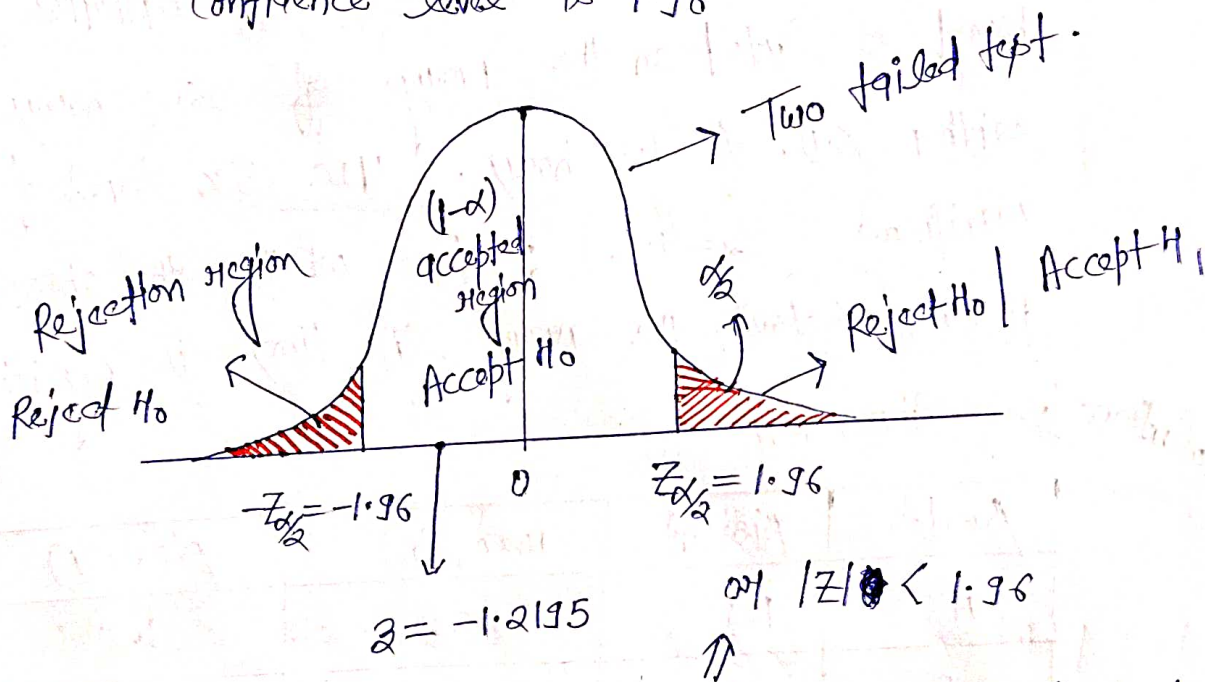 Confidence level is 1.96
Two tailed test.
(1-α)
accepted
region
Accept H₀
Rejection region
Reject H₀
α/2
Reject H₀ | Accept H₁
-Zα/2 = -1.96
0
Zα/2 = 1.96
z = -1.2195
or |Z| < 1.96